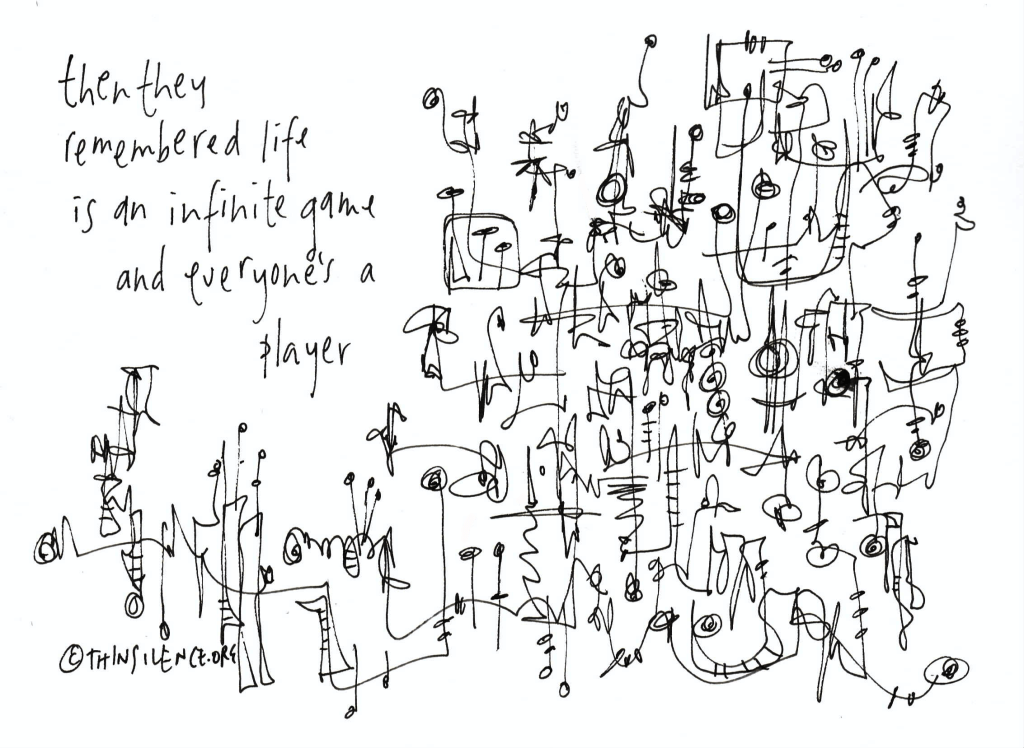 then they
remembered life
is an infinite game
and everyone's a
player
© THINSILENCE.ORG